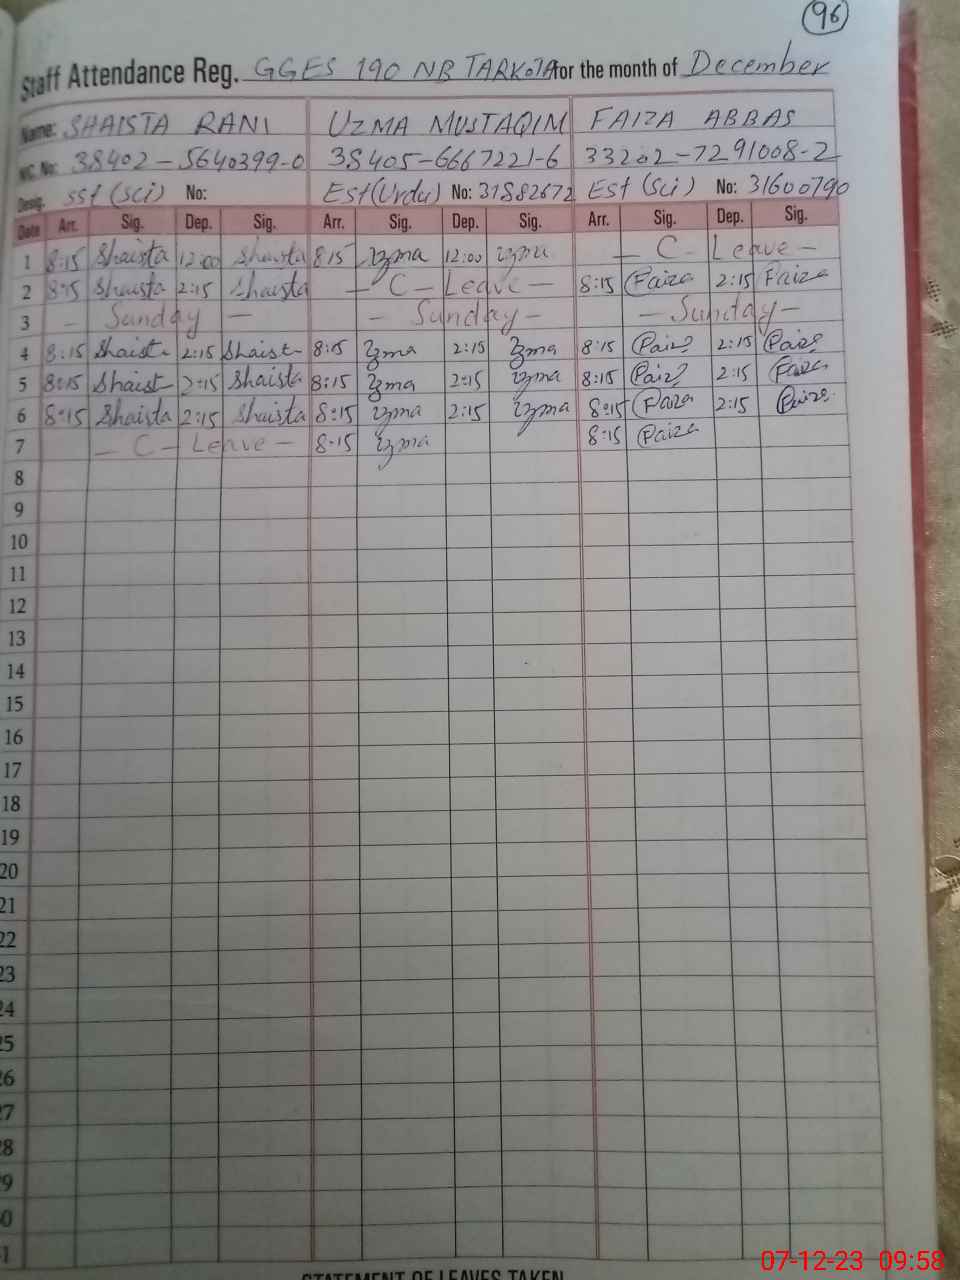 96
Staff Attendance Reg. GGES 190 NB TARKOTA for the month of December
Name: SHAISTA RANI UZMA MUSTAQIM FAIZA ABBAS
NIC. No: 38402-5640399-0 38405-6667221-6 33202-7291008-2
Desig. SST (Sci) No: Est (Urdu) No: 31882672 Est (Sci) No: 31600790
Date Arr. Sig. Dep. Sig. Arr. Sig. Dep. Sig. Arr. Sig. Dep. Sig.
1 8:15 Shaista 12:00 Shaista 8:15 Uzma 12:00 Uzma — C - Leave —
2 8:15 Shaista 2:15 Shaista — C - Leave — 8:15 Faiza 2:15 Faiza
3 — Sunday — — Sunday — — Sunday —
4 8:15 Shaista 2:15 Shaista 8:15 Uzma 2:15 Uzma 8:15 Faiza 2:15 Faiza
5 8:15 Shaista 2:15 Shaista 8:15 Uzma 2:15 Uzma 8:15 Faiza 2:15 Faiza
6 8:15 Shaista 2:15 Shaista 8:15 Uzma 2:15 Uzma 8:15 Faiza 2:15 Faiza
7 — C - Leave — 8:15 Uzma 8:15 Faiza
8
9
10
11
12
13
14
15
16
17
18
19
20
21
22
23
24
25
26
27
28
29
30
31
STATEMENT OF LEAVES TAKEN
07-12-23 09:58